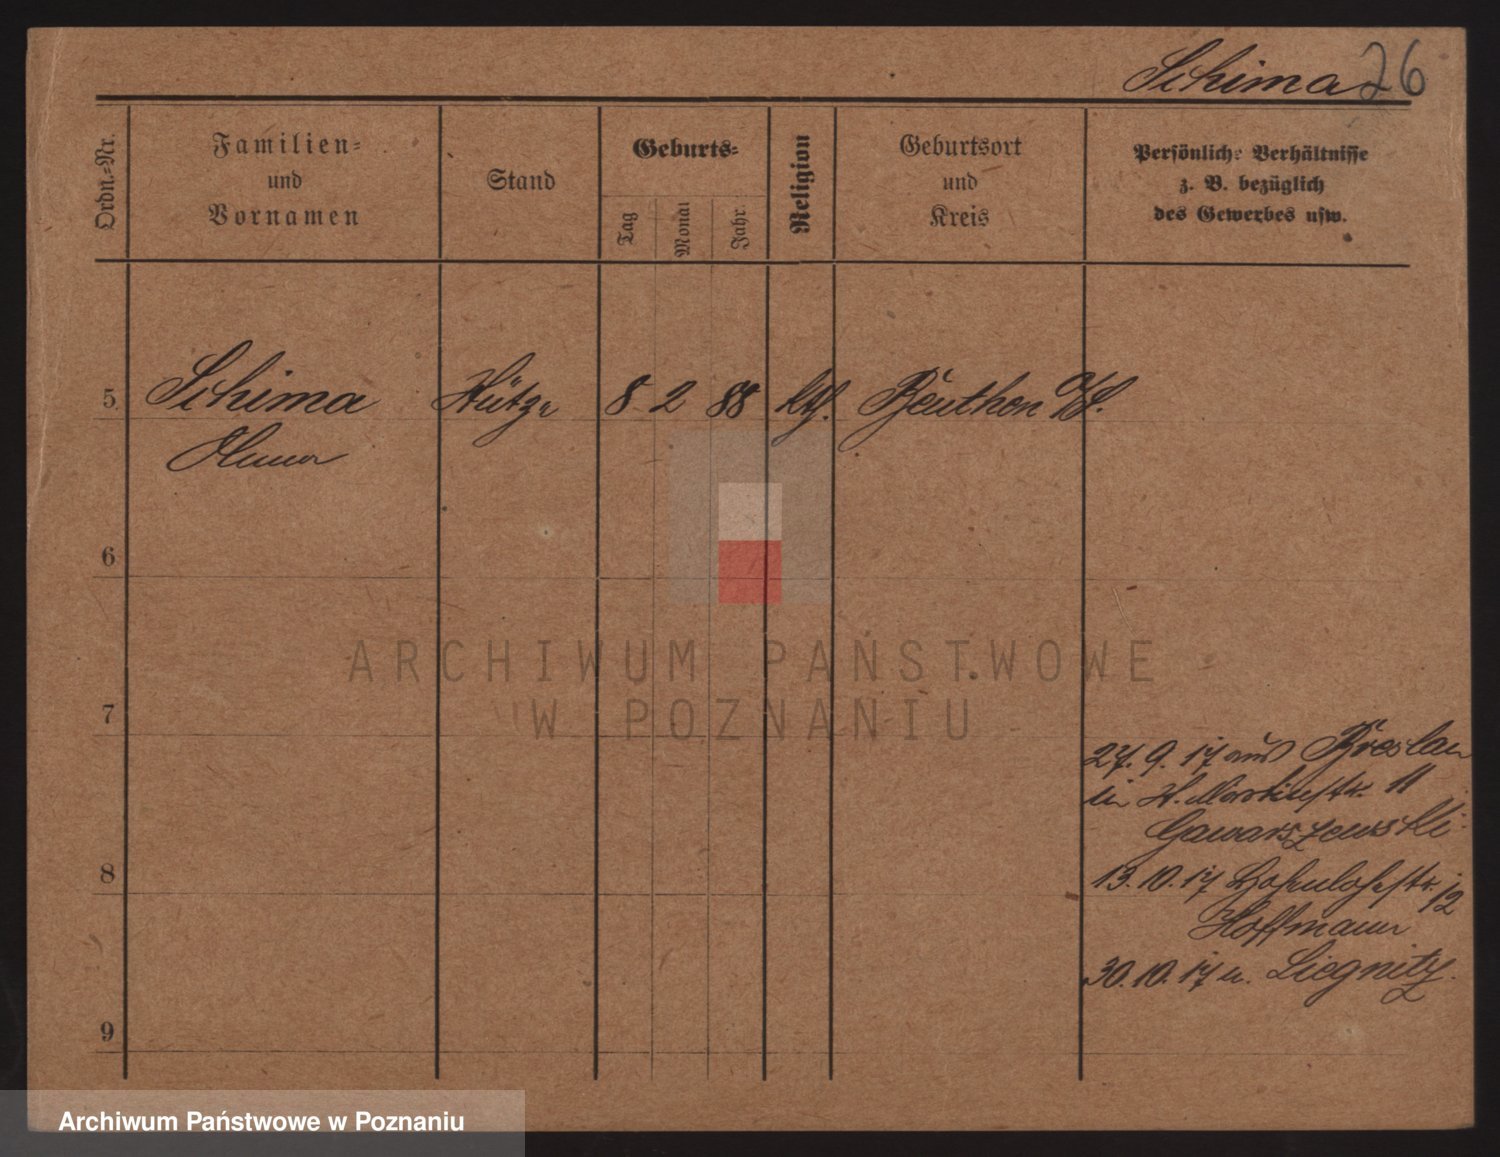 Schima 26
Ordn.-Nr.
Familien-
und
Vornamen
Stand
Geburts-
Tag
Monat
Jahr
Religion
Geburtsort
und
Kreis
Persönliche Verhältnisse
z. B. bezüglich
des Gewerbes usw.
5 Schima 8 2 88 kth. Beuthen O/S.
6
7
8
9
27. 9. 17 aus Breslau
St. Martinstr. 11
Gawarszewski
13. 10. 17 Hohenlohestr. 12
Hoffmann
30. 10. 17 n. Liegnitz.
ARCHIWUM PAŃSTWOWE
W POZNANIU
Archiwum Państwowe w Poznaniu